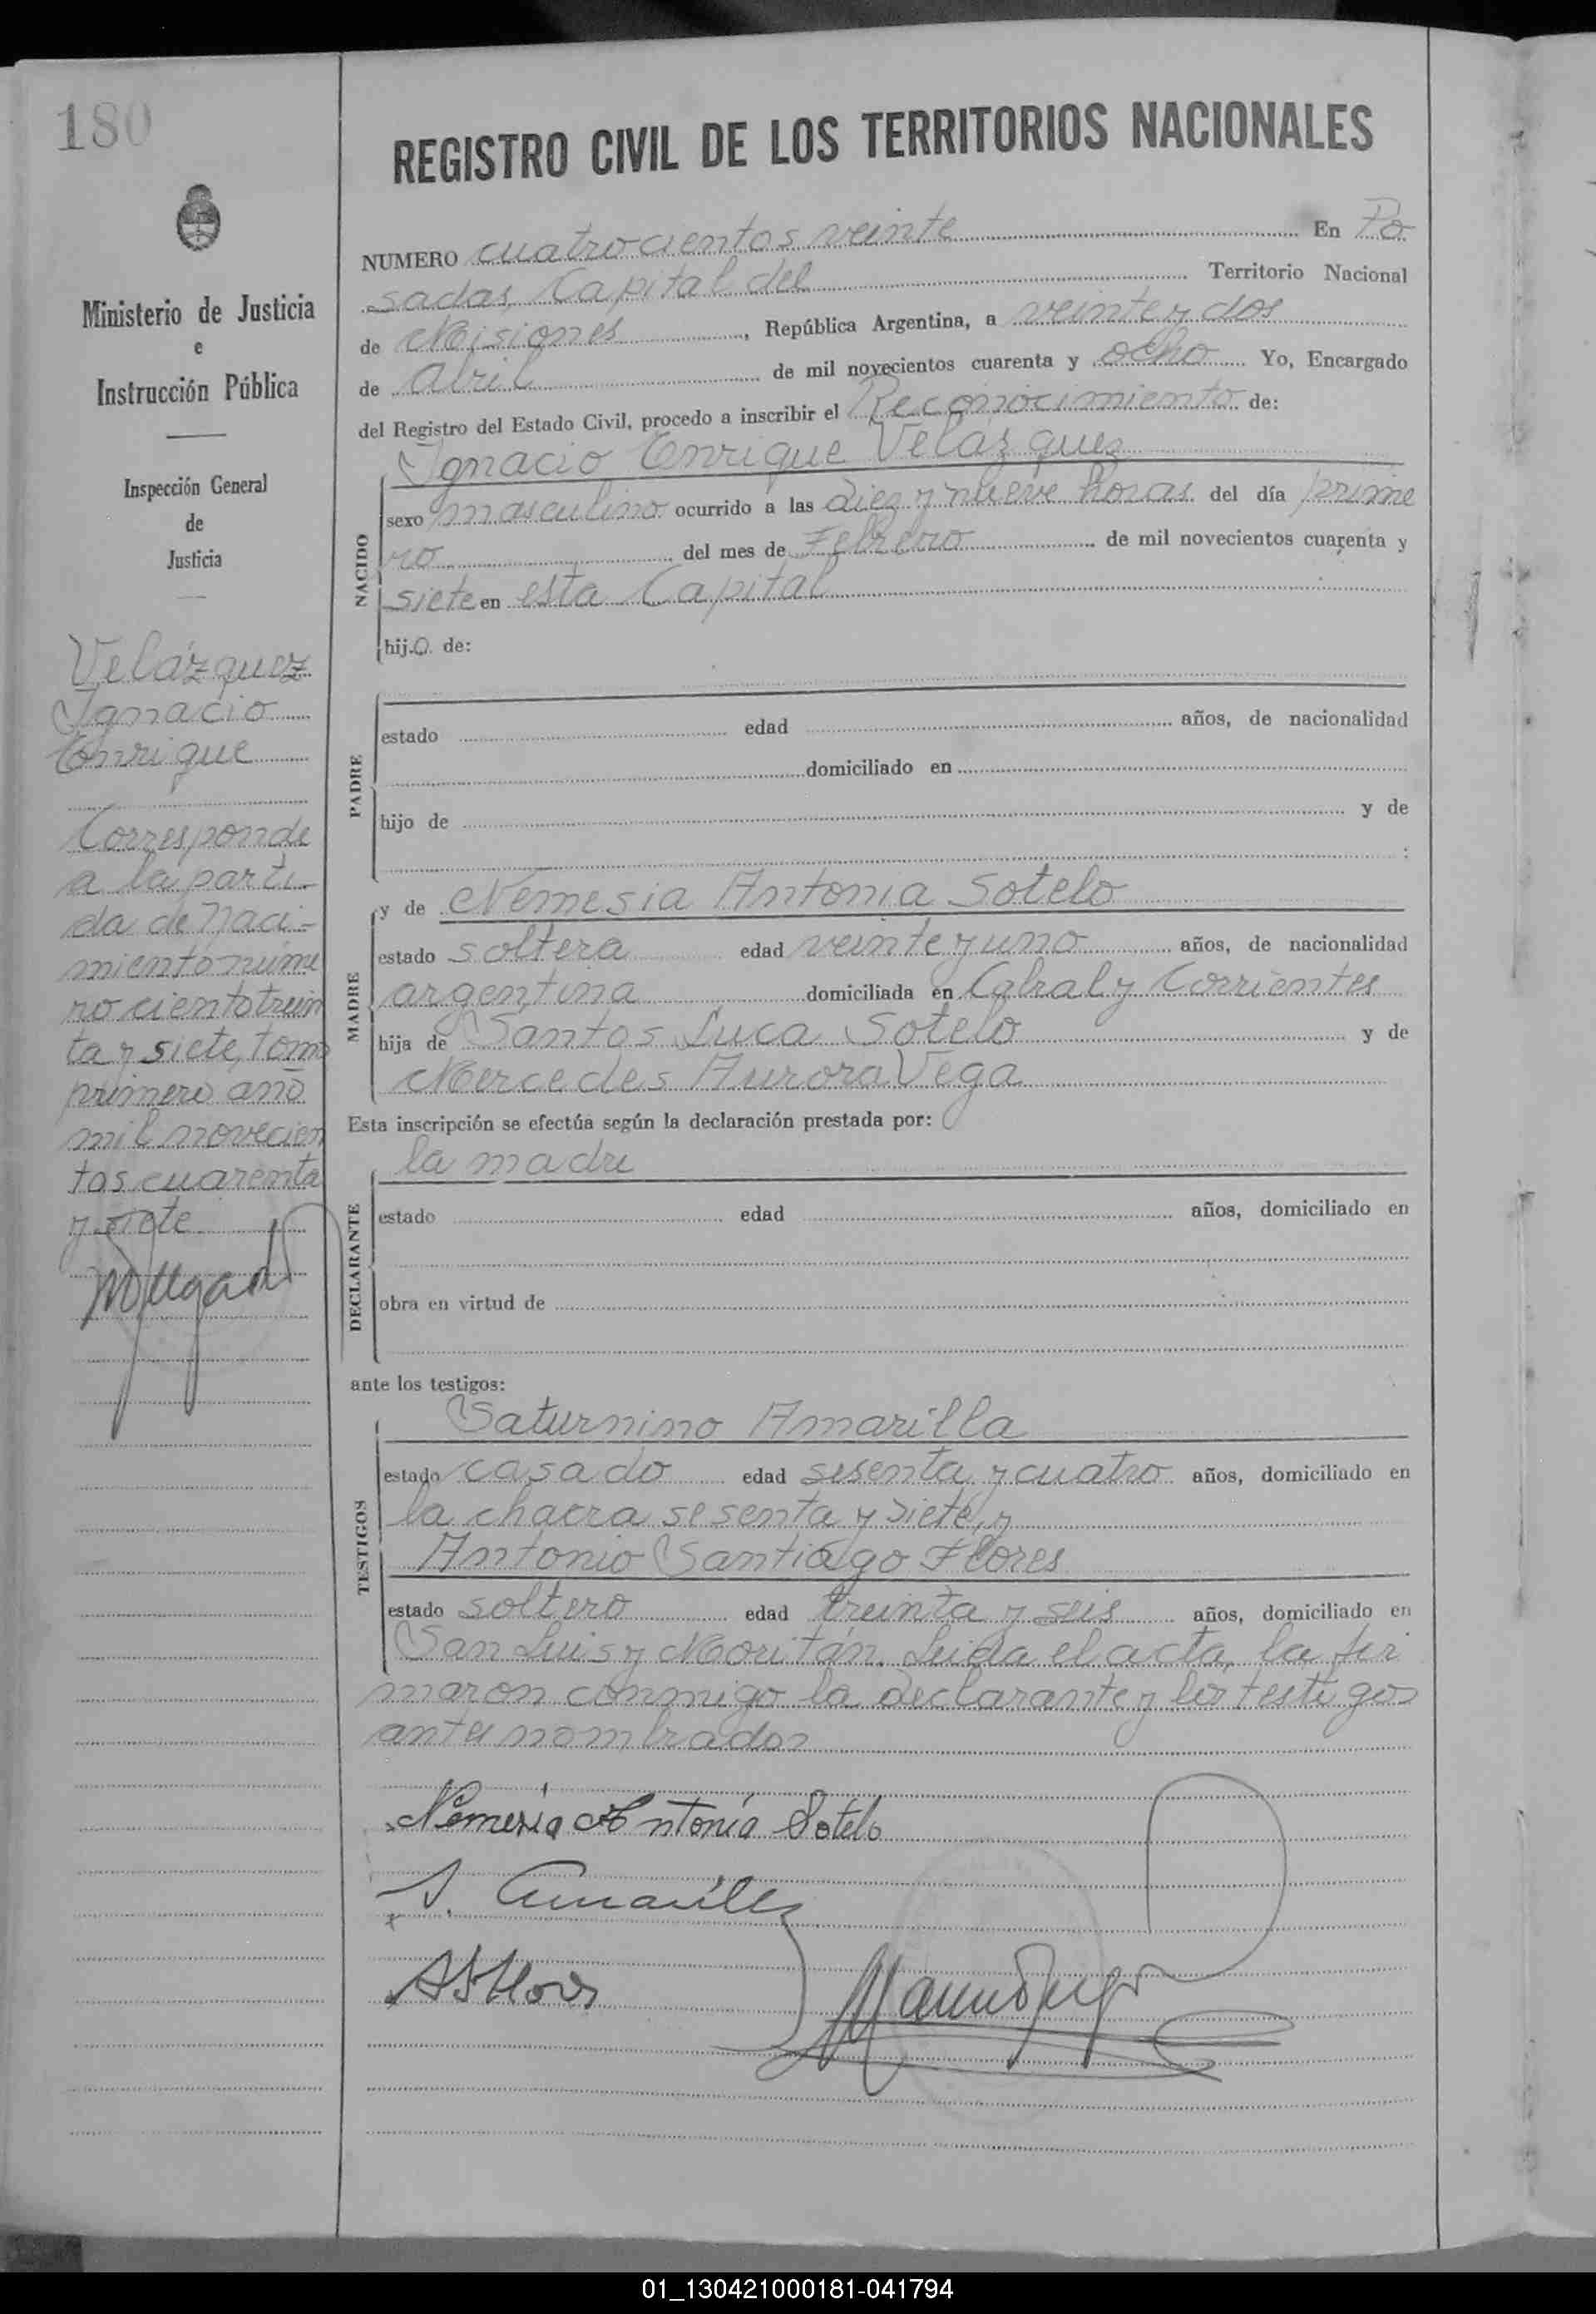 180
Ministerio de Justicia
e
Instrucción Pública
Inspección General
de
Justicia
Velázquez
Ignacio
Enrique
Corresponde
a la parti-
da de naci-
miento núme
ro ciento trein
ta y siete, tomo
primero año
mil novecien
tos cuarenta
y siete
REGISTRO CIVIL DE LOS TERRITORIOS NACIONALES
NUMERO cuatrocientos veinte En Po
sadas, Capital del Territorio Nacional
de Misiones, República Argentina, a veinte y dos
de abril de mil novecientos cuarenta y ocho Yo, Encargado
del Registro del Estado Civil, procedo a inscribir el Reconocimiento de:
Ignacio Enrique Velázquez
NACIDO
sexo masculino ocurrido a las diez y nueve horas del día prime
ro del mes de Febrero de mil novecientos cuarenta y
siete en esta Capital
hijo de:
PADRE
estado edad años, de nacionalidad
domiciliado en
hijo de y de
:
MADRE
y de Nemesia Antonia Sotelo
estado soltera edad veinte y uno años, de nacionalidad
argentina domiciliada en Cabral y Corrientes
hija de Santos Luca Sotelo y de
Mercedes Aurora Vega
Esta inscripción se efectúa según la declaración prestada por:
la madre
DECLARANTE
estado edad años, domiciliado en
obra en virtud de
ante los testigos:
Saturnino Amarilla
TESTIGOS
estado casado edad sesenta y cuatro años, domiciliado en
la chacra sesenta y siete, y
Antonio Santiago Flores
estado soltero edad treinta y seis años, domiciliado en
San Luis y Moritán. Leida el acta, la fir
maron conmigo la declarante y los testigos
antes nombrados
Nemesia Antonia Sotelo
S. Amarilla
AS Flores
01_130421000181-041794